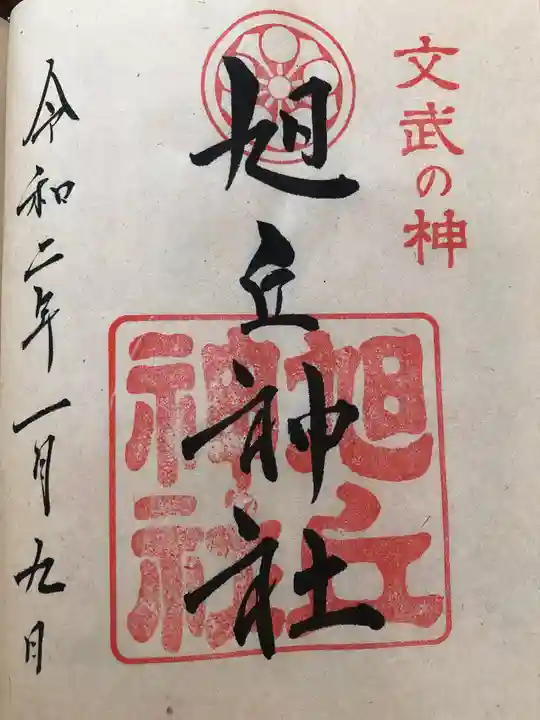 文武の神
旭丘神社
旭丘神社
令和二年一月九日